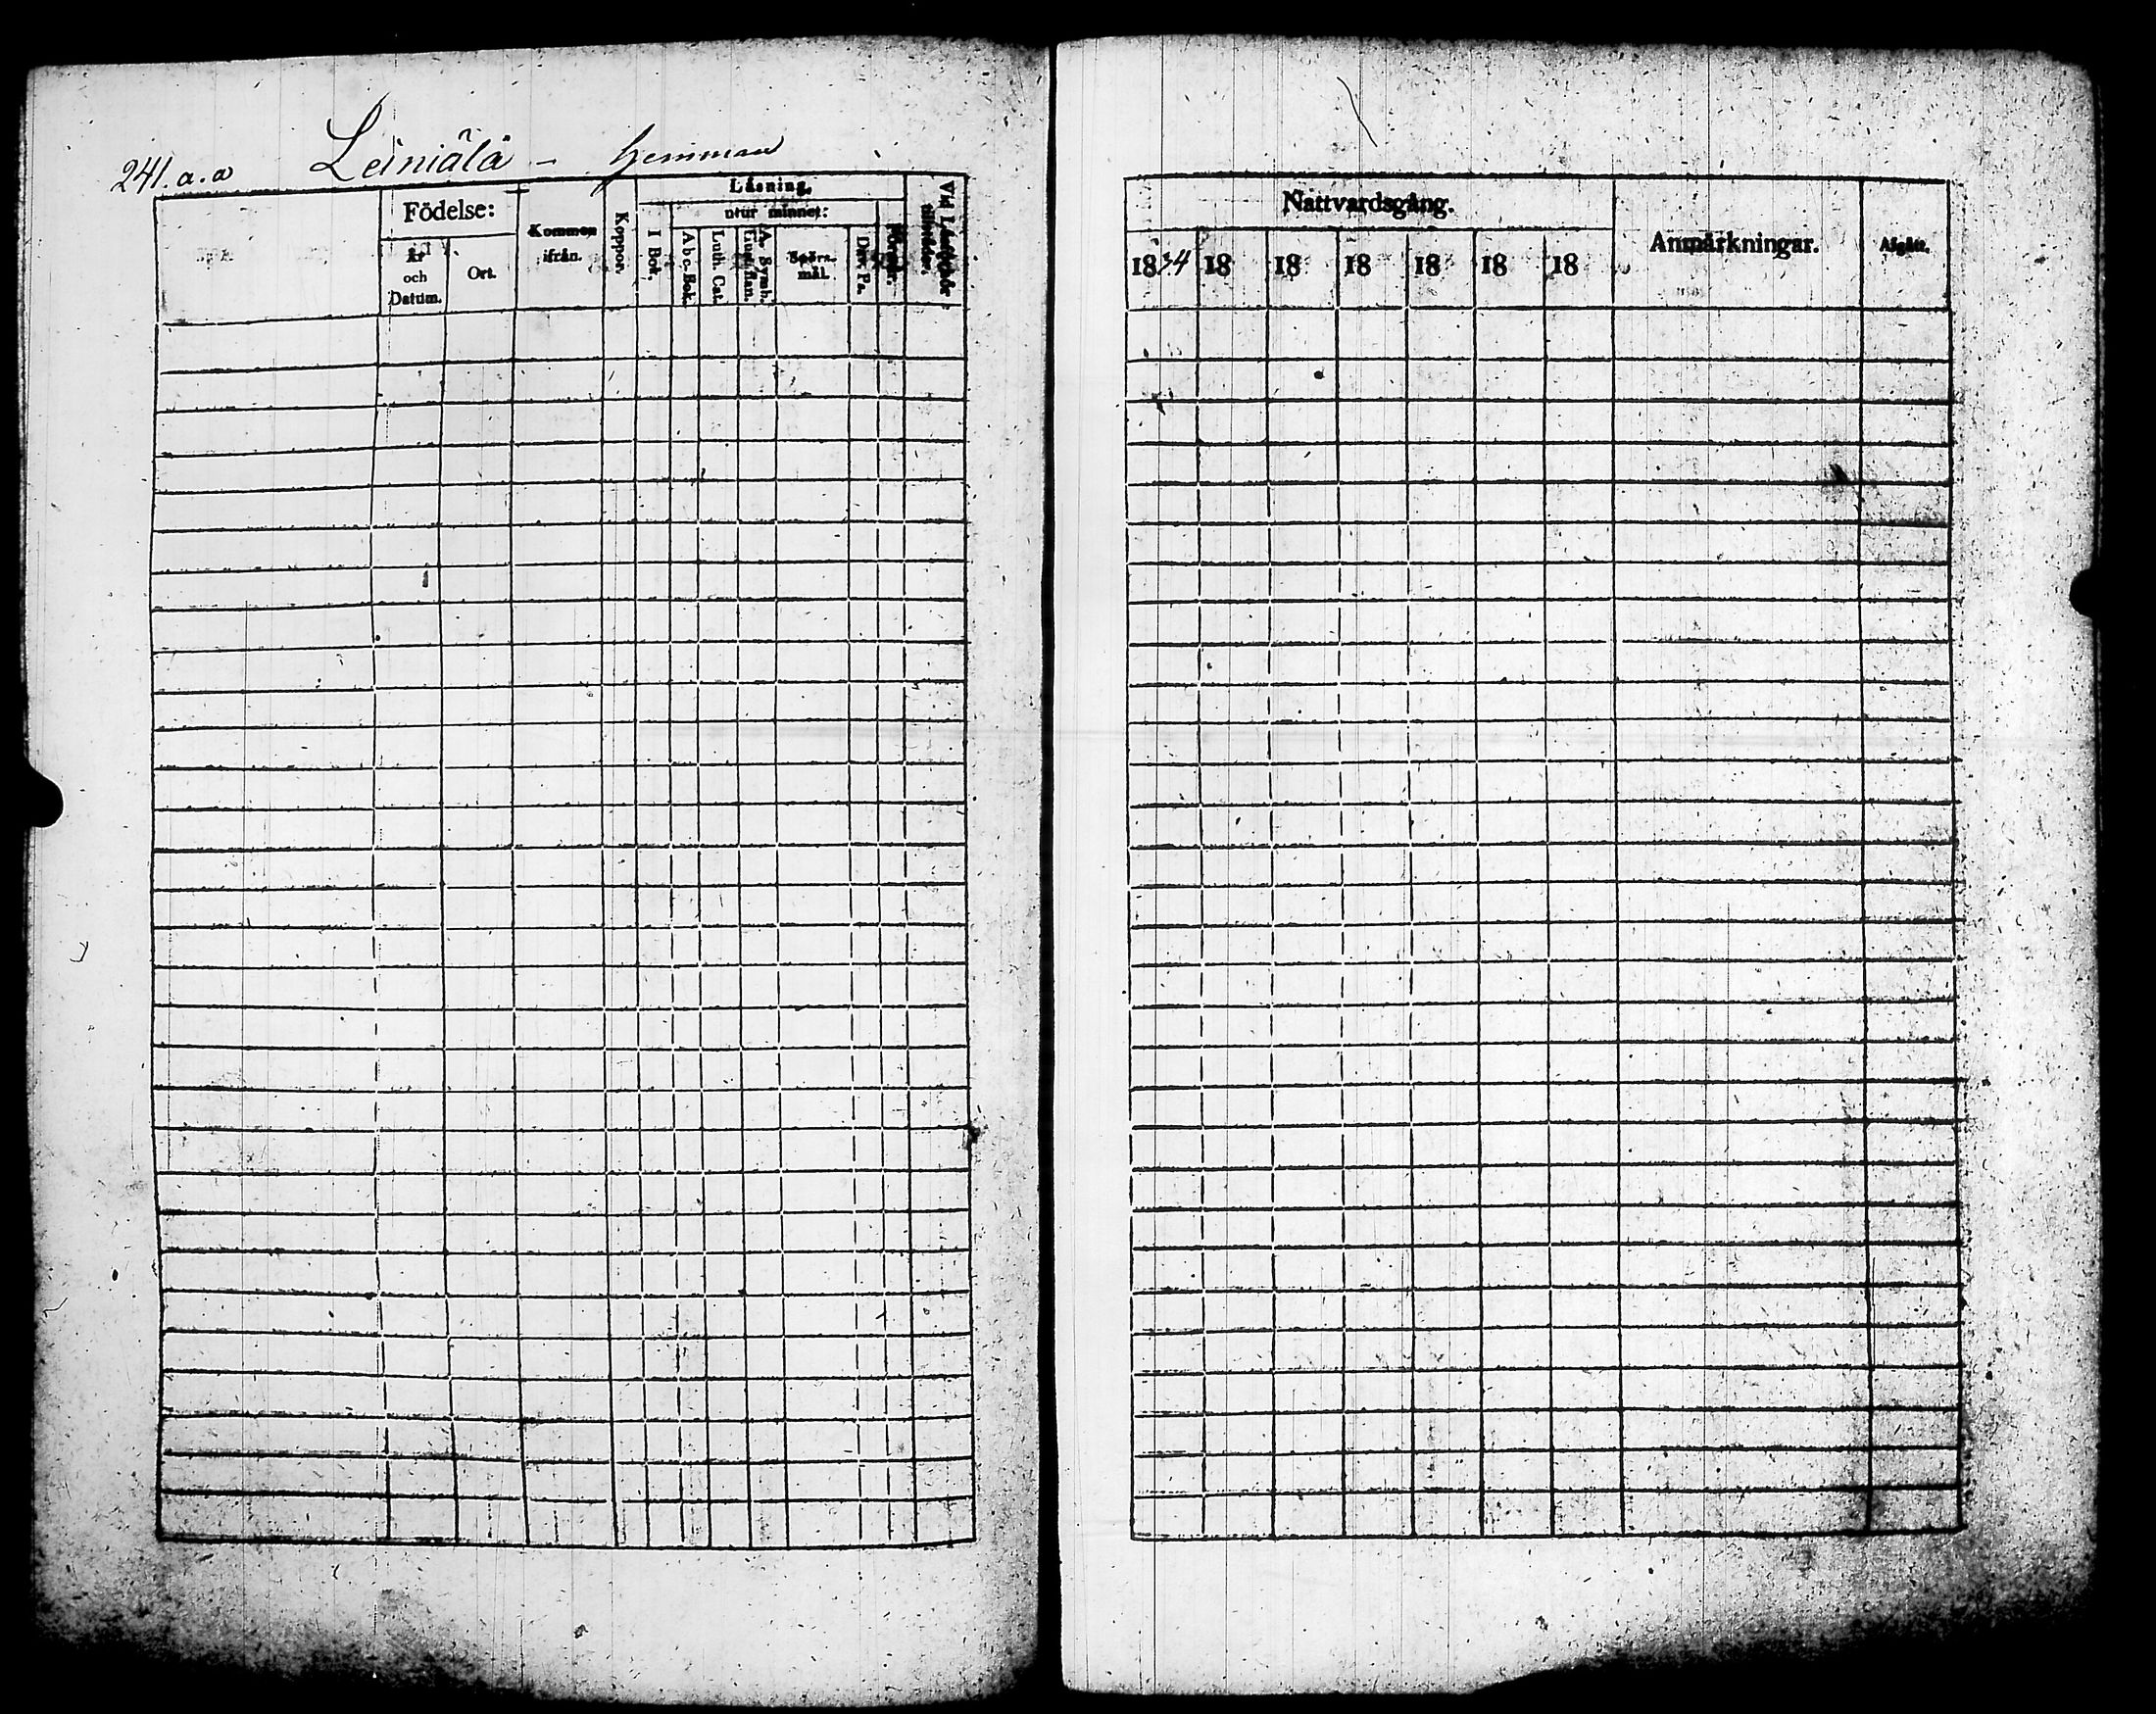 241. a. a Leiniälä - Hemman
Födelse:
År
och
Datum.
Ort.
Kommen
ifrån.
Koppor.
Läsning,
utur minnet:
I Bok.
Abc-Bok.
Luth. Cat.
A. Symb.
Hust. tafl.
Spörs-
mål.
Dav. Ps.
Förstår.
Vid Läseförhör
tillstädes.
Nattvardsgång.
1834 18 18 18 18 18 18
Anmärkningar.
Afgått.